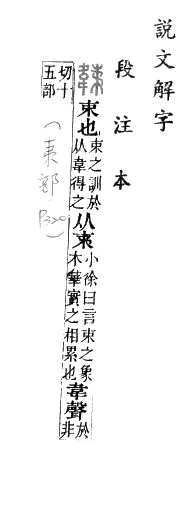 說文解字
段注本
束也
束之訓於
从韋得之
从𣐺
小徐曰言束之象
木華實之相累也
韋聲
於
非
切十
五部
部 P320)